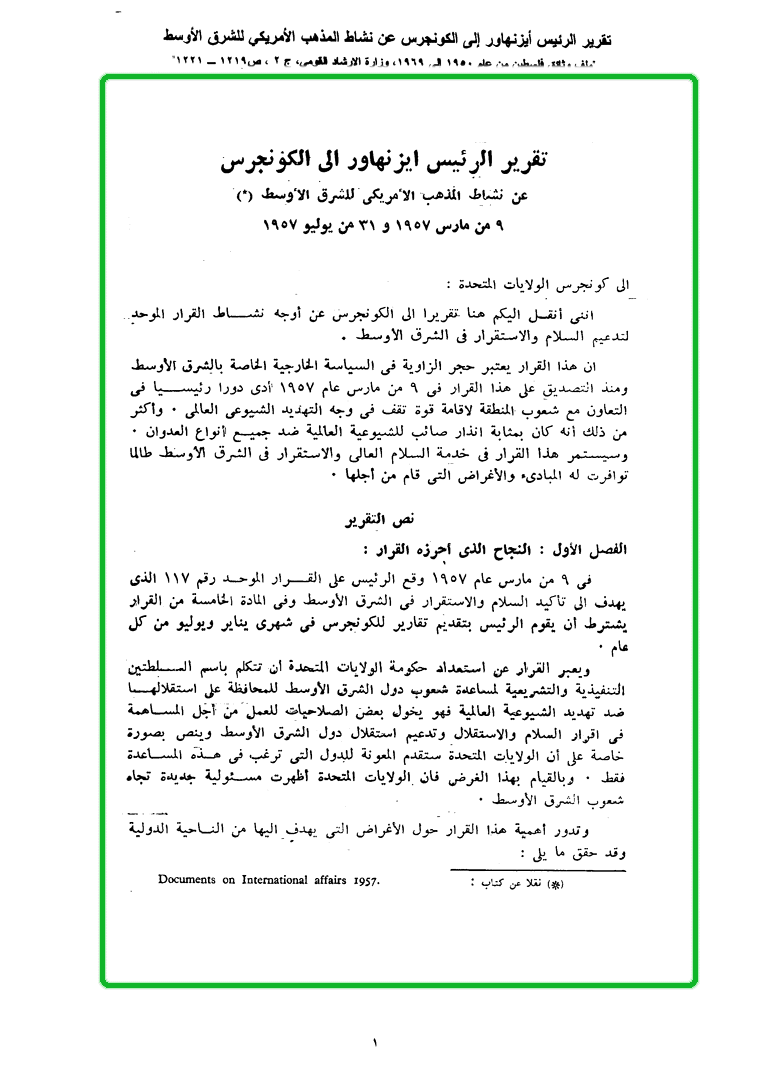 تقرير الرئيس أيزنهاور إلى الكونجرس عن نشاط المذهب الأمريكي للشرق الأوسط
"ملف وثائق فلسطين من عام ١٩٥٠ الى ١٩٦٩، وزارة الارشاد القومى، ج ٢ ، ص ١٢١٩ – ١٢٢١"
تقرير الرئيس ايزنهاور الى الكونجرس
عن نشاط المذهب الأمريكى للشرق الأوسط (*)
٩ من مارس ١٩٥٧ و ٣١ من يوليو ١٩٥٧
الى كونجرس الولايات المتحدة :
اننى أنقل اليكم هنا تقريرا الى الكونجرس عن أوجه نشاط القرار الموحد
لتدعيم السلام والاستقرار فى الشرق الأوسط .
ان هذا القرار يعتبر حجر الزاوية فى السياسة الخارجية الخاصة بالشرق الأوسط
ومنذ التصديق على هذا القرار فى ٩ من مارس عام ١٩٥٧ أدى دورا رئيسيا فى
التعاون مع شعوب المنطقة لاقامة قوة تقف فى وجه التهديد الشيوعى العالمى . وأكثر
من ذلك أنه كان بمثابة انذار صائب للشيوعية العالمية ضد جميع أنواع العدوان .
وسيستمر هذا القرار فى خدمة السلام العالمى والاستقرار فى الشرق الأوسط طالما
توافرت له المبادىء والأغراض التى قام من أجلها .
نص التقرير
الفصل الأول : النجاح الذى أحرزه القرار :
فى ٩ من مارس عام ١٩٥٧ وقع الرئيس على القرار الموحد رقم ١١٧ الذى
يهدف الى تأكيد السلام والاستقرار فى الشرق الأوسط وفى المادة الخامسة من القرار
يشترط أن يقوم الرئيس بتقديم تقارير للكونجرس فى شهرى يناير ويوليو من كل
عام .
ويعبر القرار عن استعداد حكومة الولايات المتحدة أن تتكلم باسم السلطتين
التنفيذية والتشريعية لمساعدة شعوب دول الشرق الأوسط للمحافظة على استقلالها
ضد تهديد الشيوعية العالمية فهو يخول بعض الصلاحيات للعمل من أجل المساهمة
فى اقرار السلام والاستقلال وتدعيم استقلال دول الشرق الأوسط وينص بصورة
خاصة على أن الولايات المتحدة ستقدم المعونة للدول التى ترغب فى هذه المساعدة
فقط . وبالقيام بهذا الغرض فان الولايات المتحدة أظهرت مسئولية جديدة تجاه
شعوب الشرق الأوسط .
وتدور أهمية هذا القرار حول الأغراض التى يهدف اليها من الناحية الدولية
وقد حقق ما يلى :
(*) نقلا عن كتاب : Documents on International affairs 1957.
١